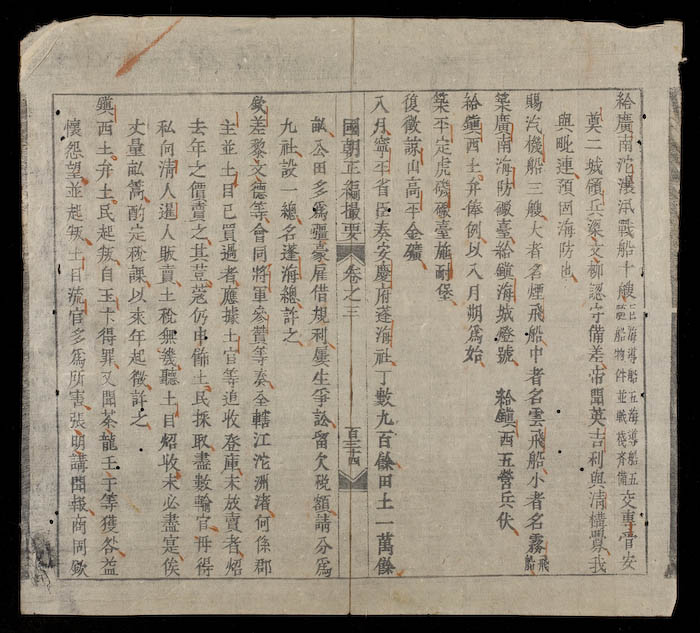 給廣南沱㶞汛戰船十艘 巴海導船五海導船五 隨船物件並戰棧齊備 交重晋安
奠二城領兵梁文柳認守備差帝聞英吉利與清構釁我
與毗連預固海防也
賜汽機船三艘大者名煙飛船中者名雲飛船小者名霧飛船
築廣南海防礮臺給鎮海城燈號 給鎮西五營兵伏
給鎮西土弁俸例以八月朔爲始
築平定虎磯礮臺施耐堡
復徵諒山高平金礦
八月寧平省臣奏安慶府蓬海社丁數九百餘田土一萬餘
國朝正編撮要 卷之三 百三十四
畝公田多爲疆豪雇借規利屢生爭訟留欠税額請分爲
九社設一總名蓬海總許之
欽差黎文德等會同將軍參贊等奏全轄江沱洲渚何係郡
主並土目已買過者應據土官等追收登庫未放賣者炤
去年之價賣之其荳蔻仍申飾土民採取盡數輸官再得
私向清人暹人販賣土税無幾聽土目炤收未必盡寔俟
丈量畝簿酌定税課以來年起徵許之
鎮西土弁土民起叛自玉卞得罪又聞茶龍王于等獲咎益
懷怨望並起叛土目流官多爲所害張明講聞報商同欽